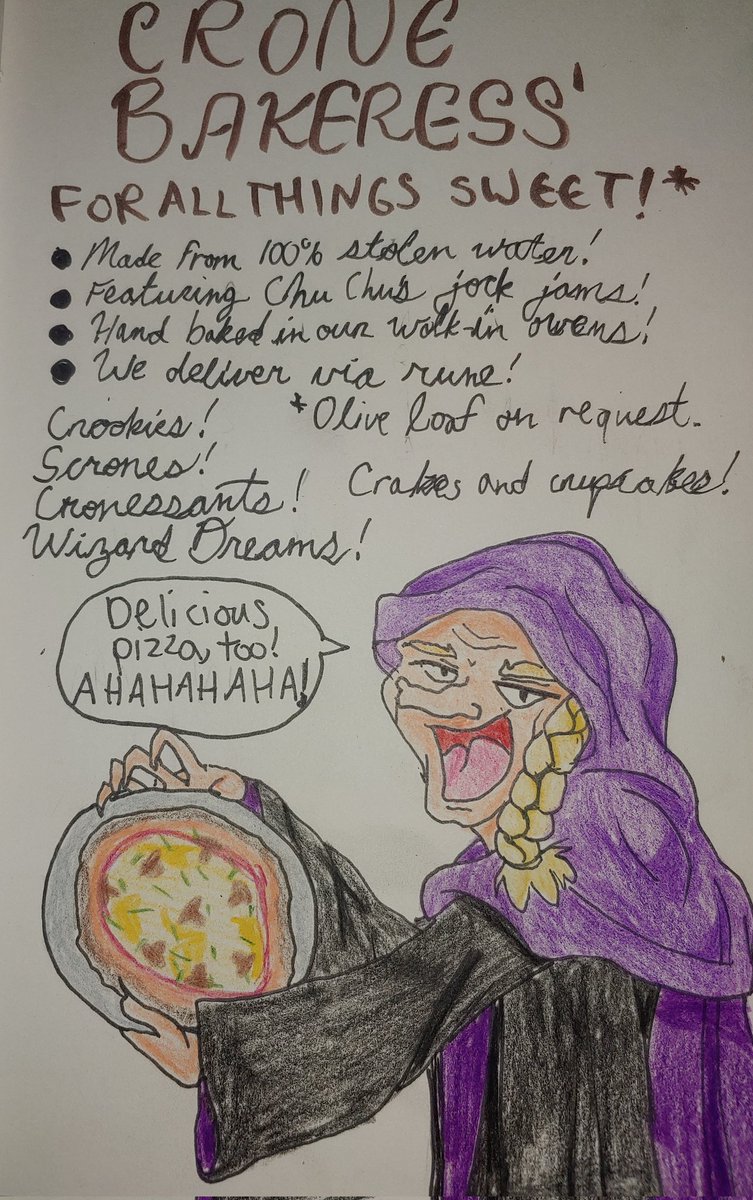 CRONE
BAKERESS'
FOR ALL THINGS SWEET!*
• Made from 100% stolen water!
• Featuring Chu Chu's jock jams!
• Hand baked in our walk-in ovens!
• We deliver via rune!
Crookies!
*Olive loaf on request.
Scrones!
Cronessants!
Crakes and crupcakes!
Wizard Dreams!
Delicious
pizza, too!
AHAHAHAHA!